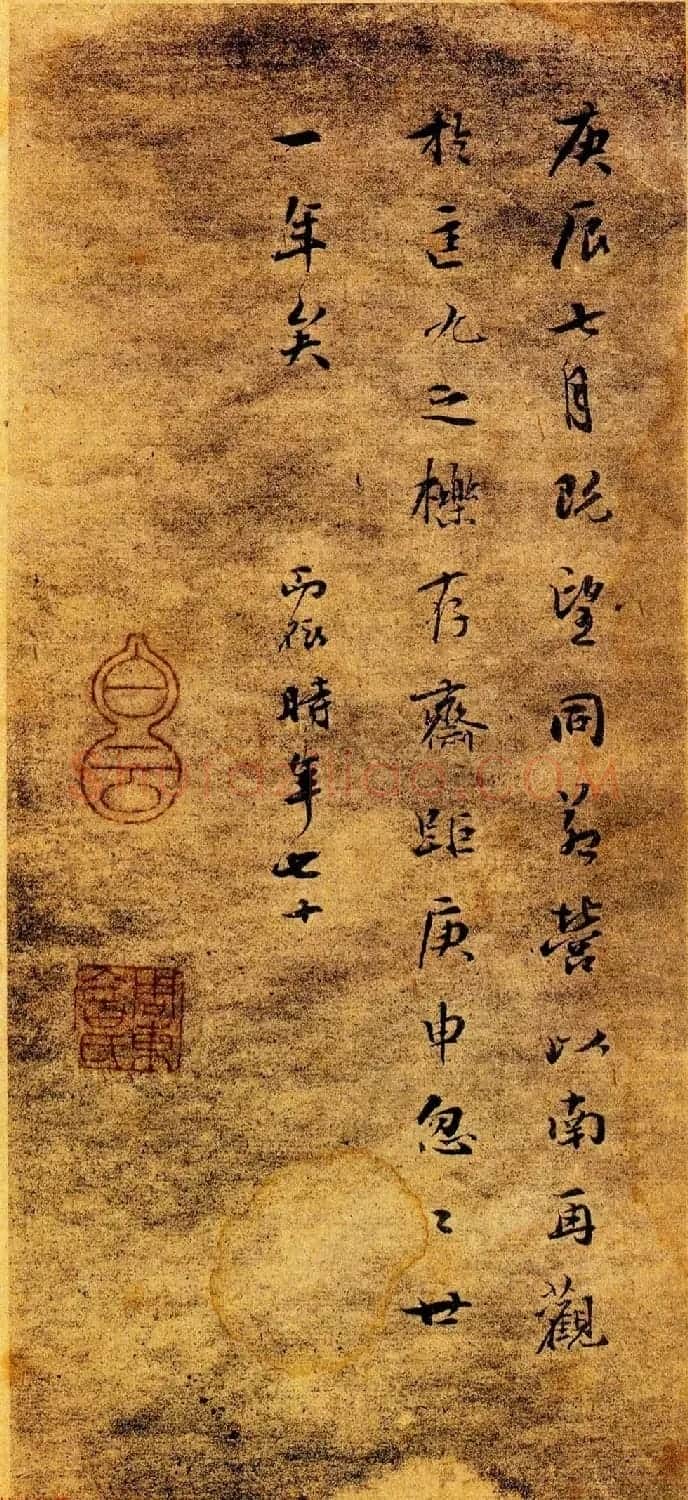 庚辰七月既望同營以南再觀
於匡九之櫟存齋距庚申忽〻廿
一年矣
時年七十
shufaziliao.COM